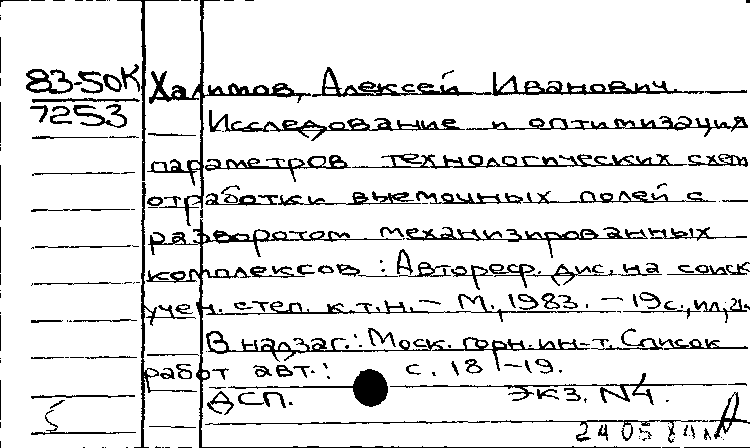 83-50К Халимов, Алексей Иванович.
7253 Исследование и оптимизация
параметров технологических схем
отработки выемочных полей с
разворотом механизированных
комплексов : Автореф. дис. на соиск
учен. степ. к.т.н. – М., 1983. – 19с., ил., 21.
В надзаг.: Моск. горн. ин-т. Список
работ авт.: с. 18 -19.
ДСП. экз. N4.
5
24 05 84